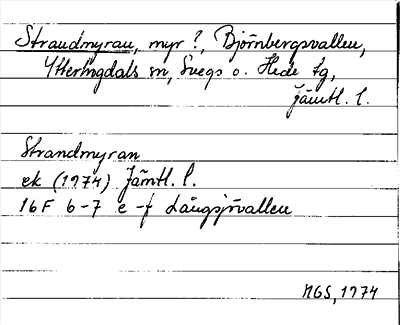 Strandmyran, myr ?, Björnbergsvallen,
Ytterhogdals sn, Svegs o. Hede tg,
Jämtl. l.
Strandmyran
ek (1974) Jämtl. l.
16F 6-7 e-f Långsjövallen
NGS, 1974